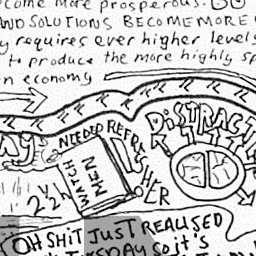 come more prosperous.
AND SOLUTIONS BECOME MORE
y requires ever higher levels
to produce the more highly sp
n economy
DISTRACT
NEEDED REFRESHER
WATCH
MEN
2 v
22h
OH SHIT JUST REALISED
TUESDAY so it's